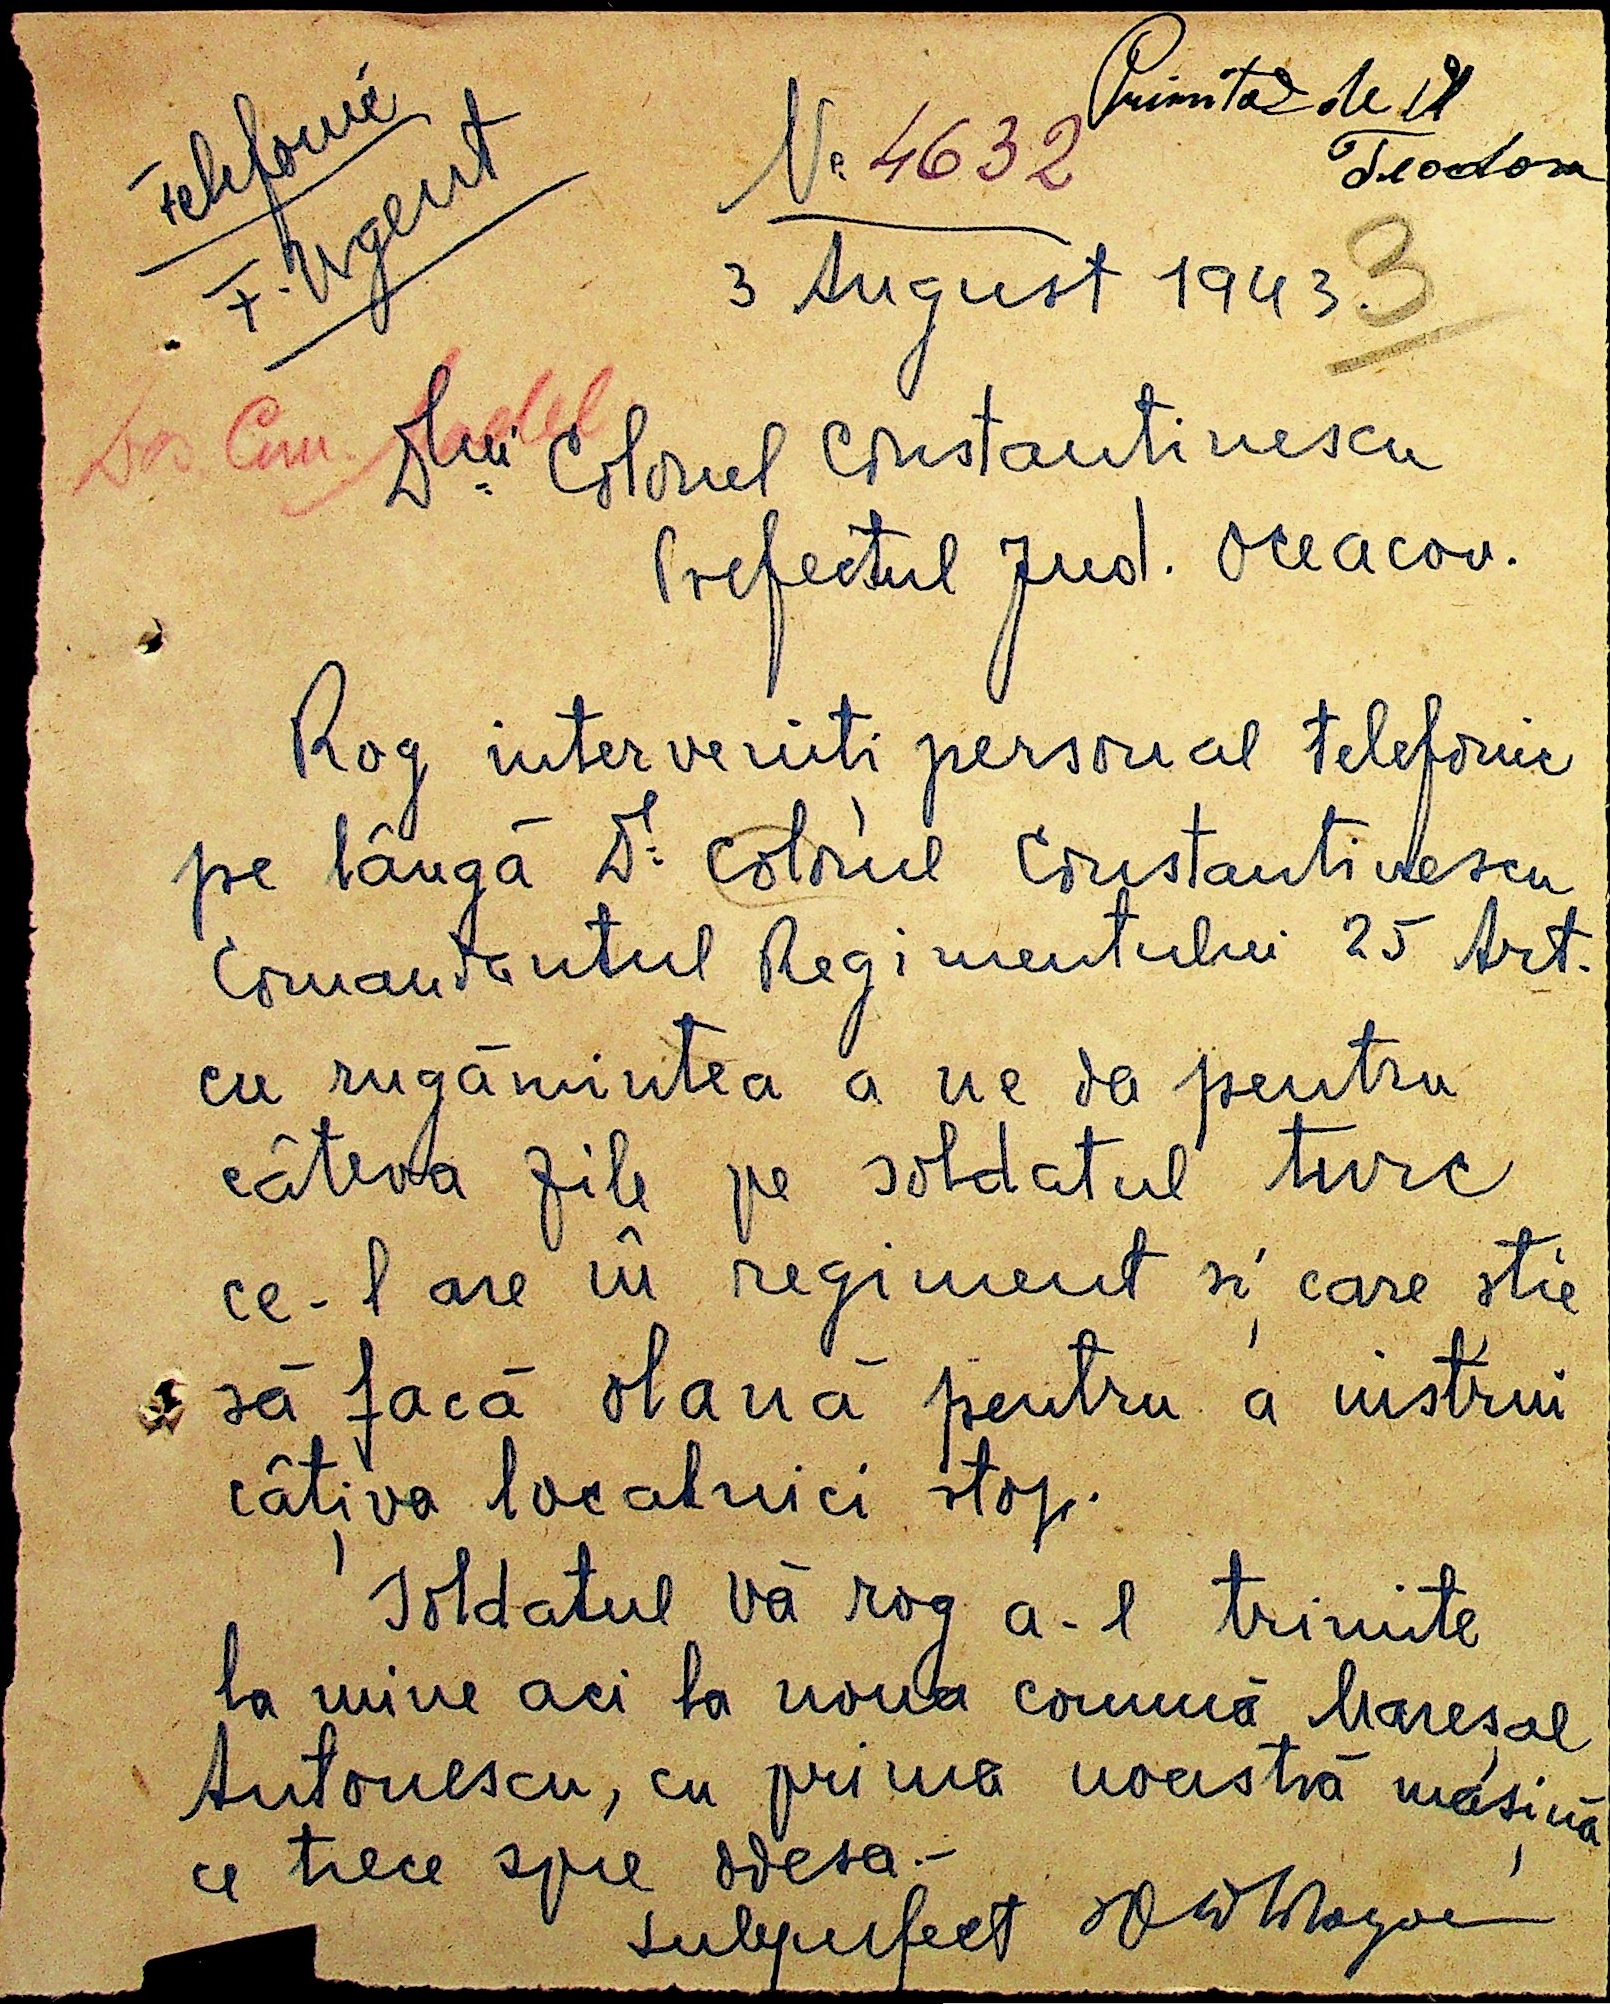 Telefonic
F. Urgent
Nº 4632
Primită de
Teodora
3 August 1943.
3
Dos Com. Model
Dlui Colonel Constantinescu
Prefectul Jud. Oceacov.
Rog interveniti personal telefonic
pe lângă Dl Colonel Constantinescu
Comandantul Regimentului 25 Art.
cu rugămintea a ne da pentru
câteva zile pe soldatul turc
ce-l are în regiment și care stie
să facă olană pentru a instrui
câțiva localnici stop.
Soldatul vă rog a-l trimite
la mine aci la noua comună Mareșal
Antonescu, cu prima noastră mașină
ce trece spre Odesa.-
Subprefect